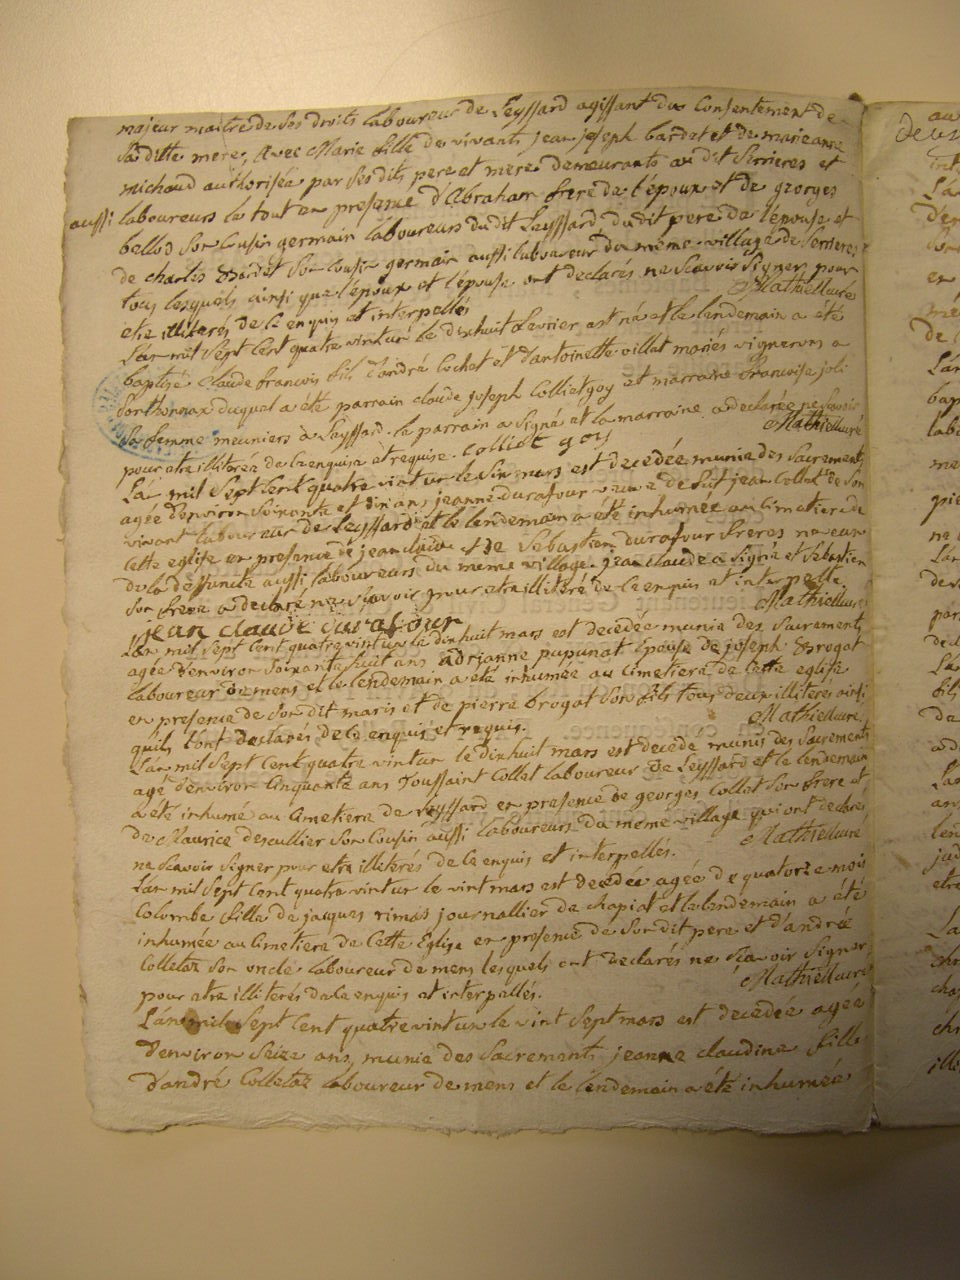 majeur maitre de ses droits laboureur de Leyssard agissant du Consentement de
Sa ditte mere, avec Marie fille des vivants jean joseph bardet et de marieanne
michaud authorisée par Ses dits pere et mere demeurants au dit Serrieres et
aussi laboureurs le tout en presence d'Abraham frere de l'époux et de georges
bellod Son Cousin germain laboureurs du dit Leyssard du dit pere de l'épouse et
de charles Bardet Son Cousin germain aussi laboureur du meme village de Serrieres
tous lesquels ainsi que l'époux et l'épouse ont declarés ne Scavoir Signer pour
etre illiterés de ce enquis et interpellés Mathieu curé
L'an mil Sept Cent quatre vint un le dixhuit fevrier est né et le lendemain a été
baptisé Claude francois fils d'andré Cochet et d'antoinette villat mariés vignerons a
duquel a été parrain claude joseph Colliet goy et marraine francoise joli
Sa femme meuniers à Leyssard. le parrain a Signé et la marraine a declarée ne Scavoir
pour etre illiterée de ce enquise et requise. Colliet goy Mathieu curé
L'an mil Sept Cent quatre vint un le Six mars est decedée munie des Sacrements
agée d'environ Soixante et dix ans jeanne durafour veuve de fut jean Collet de Son
vivant laboureur de Leyssard et le lendemain a été inhumée au Cimetiere de
cette eglise en presence de jean claude et de Sebastien durafour freres neveux
de la deffuncte aussi laboureurs du meme village. jean claude a Signé et Sebastien
Son frere a declaré ne Scavoir pour etre illiteré de ce enquis et interpellé.
jean claude durafour Mathieu curé
L'an mil Sept Cent quatre vint un le dixhuit mars est decedée munie des Sacrements
agée d'environ Soixante huit ans adrianne pupunat épouse de joseph Brogat
laboureur de mens et le lendemain a été inhumée au Cimetiere de Cette eglise
en presence de Son dit maris et de pierre brogat Son fils tous deux illiteres ainsi
quils l'ont declarés de ce enquis et requis. Mathieu curé
L'an mil Sept Cent quatre vint un le dixhuit mars est decedé munis des Sacrements
agé d'environ Cinquante ans Toussaint Collet laboureur de Leyssard et le lendemain
a été inhumé au Cimetiere de Leyssard en presence de georges Collet Son frere et
de Maurice descullier Son Cousin aussi laboureurs du meme village qui ont declarés
ne Scavoir Signer pour etre illiterés de ce enquis et interpellés. Mathieu curé
L'an mil Sept Cent quatre vint un le vint mars est decedée agée de quatorze mois
Colombe fille de jacques rimas journallier de chapiat et le lendemain a été
inhumée au Cimetiere de Cette Eglise en presence de Son dit pere et d'andré
Colletaz Son oncle laboureur de mens lesquels ont declarés ne Scavoir Signer
pour etre illiterés de ce enquis et interpellés. Mathieu curé
L'an mil Sept Cent quatre vint un le vint Sept mars est decedée agée
d'environ Seize ans, munie des Sacrements jeanne claudine fille
d'andré Colletaz laboureur de mens et le lendemain a été inhumée